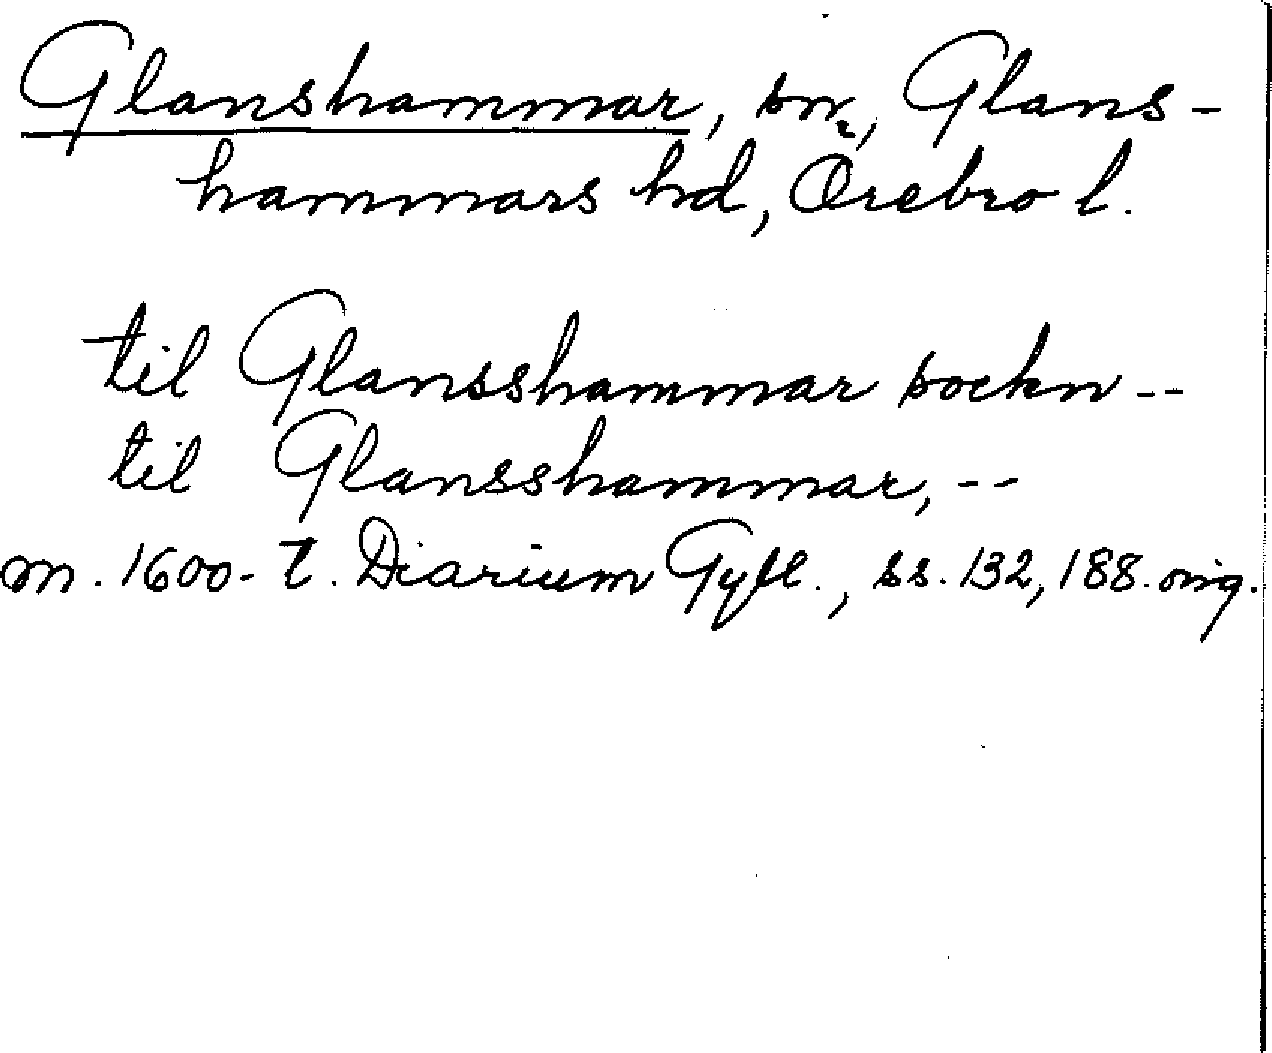 Glanshammar, sn., Glans-
hammars hd, Örebro l.
til Glansshammar sockn --
til Glansshammar, --
m. 1600-t. Diarium Gyll., ss. 132, 188. orig.